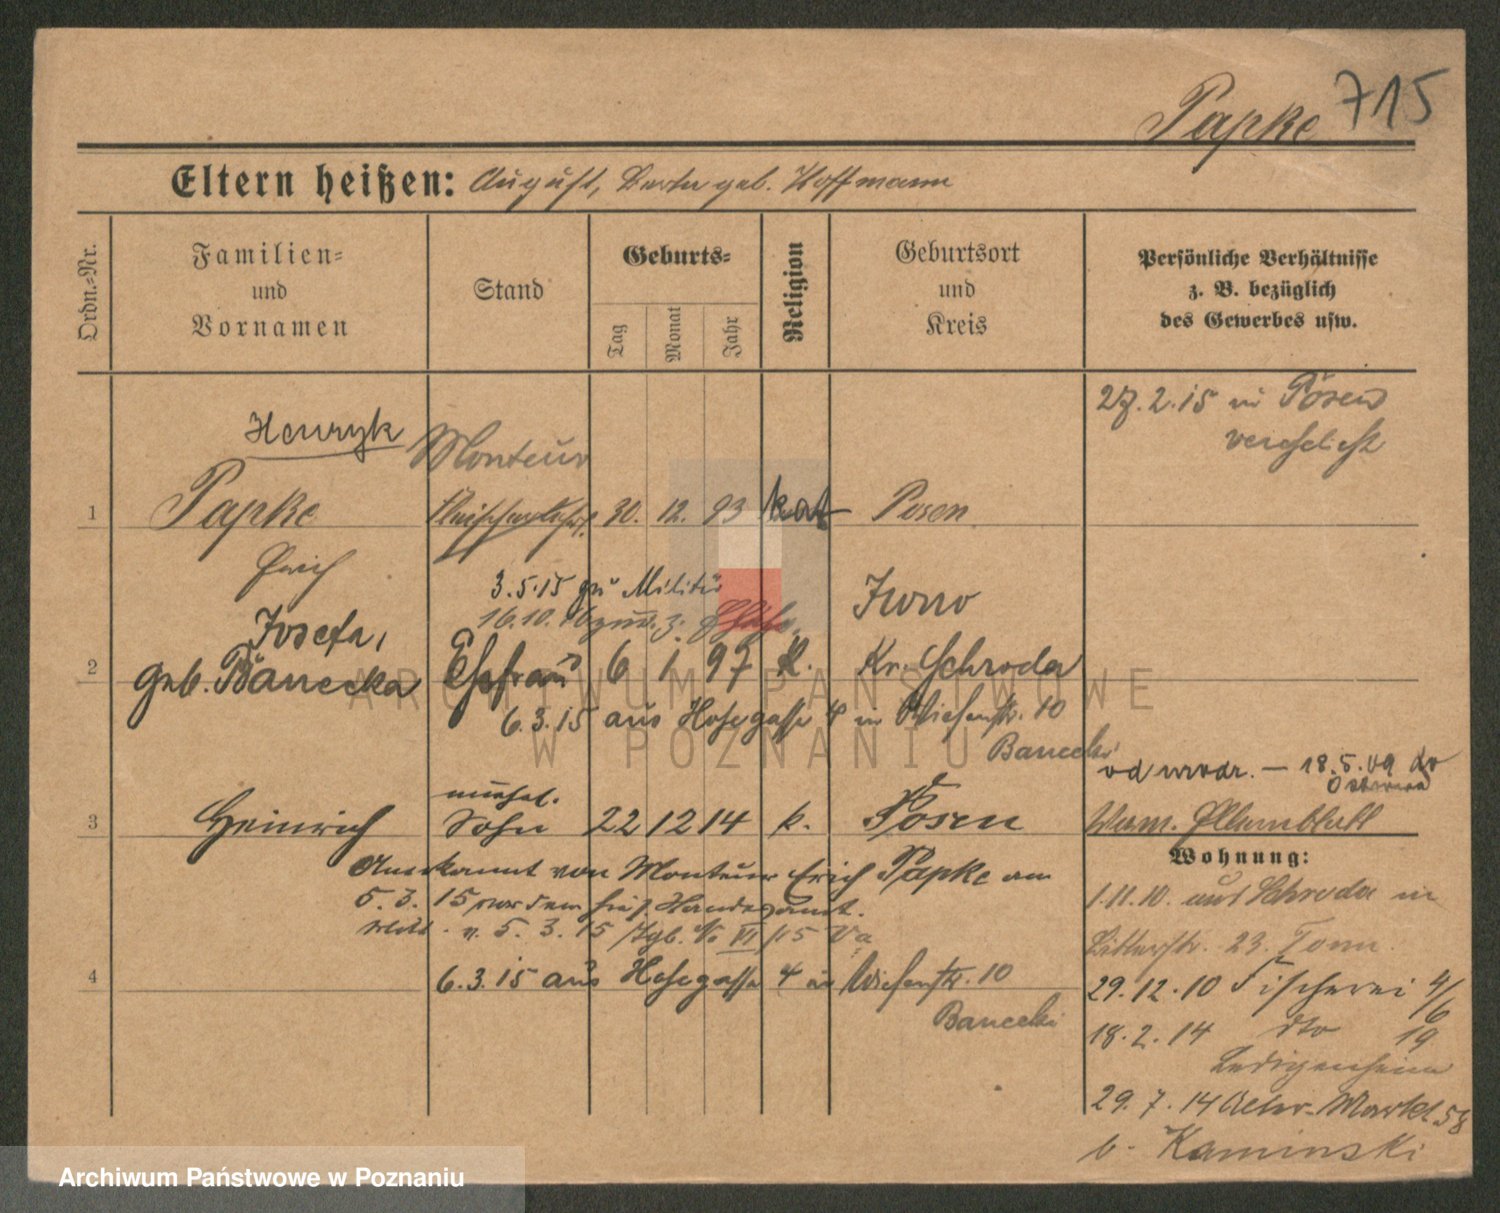 Papke 715
Eltern heißen: August, geb. Hoffmann
Ordn.-Nr.
Familien-
und
Vornamen
Stand
Geburts-
Tag
Monat
Jahr
Religion
Geburtsort
und
Kreis
Persönliche Verhältnisse
z. B. bezüglich
des Gewerbes usw.
27.2.15 in Posen
verehelicht
Henryk
Monteur
1 Papke 30. 12. 93 kat Posen
Erich
3.5.15 zu Militär
16.10.
Josefa,
2 geb. Banecka Ehefrau 6 1 97 k. Kr. Schroda
6.3.15 aus Hosegasse 4 in Wiesenstr. 10
Banecki
od urodz. — 18.5.09 do
3 Heinrich unehel.
Sohn 22 12 14 k. Posen
Anerkannt von Monteur Erich Papke am
5.3.15 vor dem
v. 5.3.15 Tgb. No VI
4 6.3.15 aus Hosegasse 4 in Wiesenstr. 10
Banecki
Wohnung:
1.11.10. aus Schroda in
Ritterstr. 23.
29.12.10 Fischerei 4/6
18.2.14 dto 19
Ledigenheim
29.7.14 Markt 58
b. Kaminski
ARCHIWUM PAŃSTWOWE
W POZNANIU
Archiwum Państwowe w Poznaniu